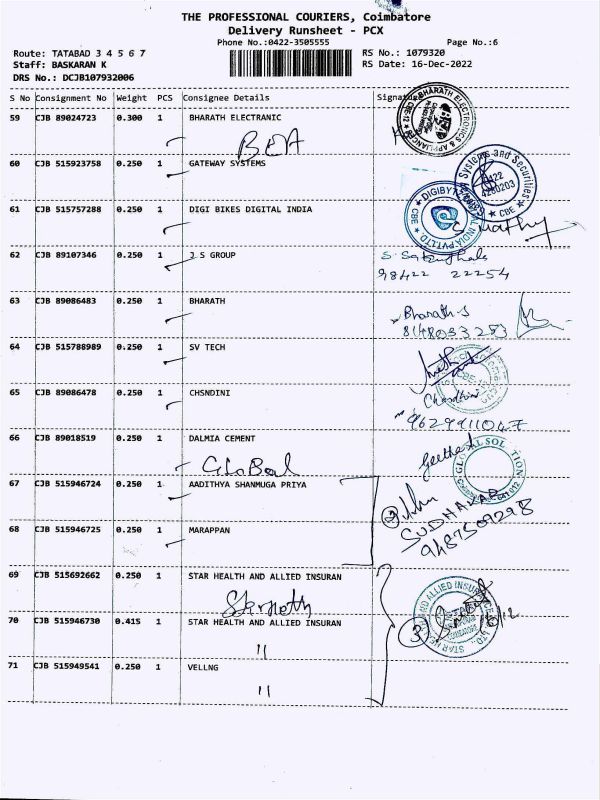 THE PROFESSIONAL COURIERS, Coimbatore
Delivery Runsheet - PCX
Phone No.:0422-3505555
Page No.:6
Route: TATABAD 3 4 5 6 7
RS No.: 1079320
Staff: BASKARAN K
RS Date: 16-Dec-2022
DRS No.: DCJB107932006
S No Consignment No Weight PCS Consignee Details Signature
59 CJB 89024723 0.300 1 BHARATH ELECTRANIC
BEA
BHARATH ELECTRONICS & APPLIANCES CBE-12
60 CJB 515923758 0.250 1 GATEWAY SYSTEMS
Systems and Securities
0422
4280203
CBE
61 CJB 515757288 0.250 1 DIGI BIKES DIGITAL INDIA
INDIA PVT LTD.
CBE
62 CJB 89107346 0.250 1 J S GROUP
98422 22254
63 CJB 89086483 0.250 1 BHARATH
Bharath-S
8148033253
64 CJB 515788989 0.250 1 SV TECH
65 CJB 89086478 0.250 1 CHSNDINI
9629911047
66 CJB 89018519 0.250 1 DALMIA CEMENT
GLoBal
GLOBAL SOLUTION
67 CJB 515946724 0.250 1 AADITHYA SHANMUGA PRIYA
2
SUDHAKAR
9487509298
68 CJB 515946725 0.250 1 MARAPPAN
69 CJB 515692662 0.250 1 STAR HEALTH AND ALLIED INSURAN
70 CJB 515946730 0.415 1 STAR HEALTH AND ALLIED INSURAN
"
3
16/12
71 CJB 515949541 0.250 1 VELLNG
"